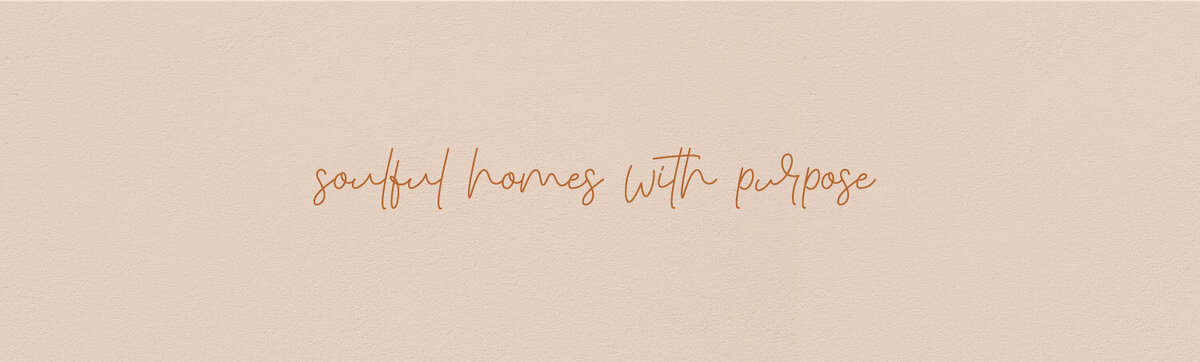 soulful homes with purpose